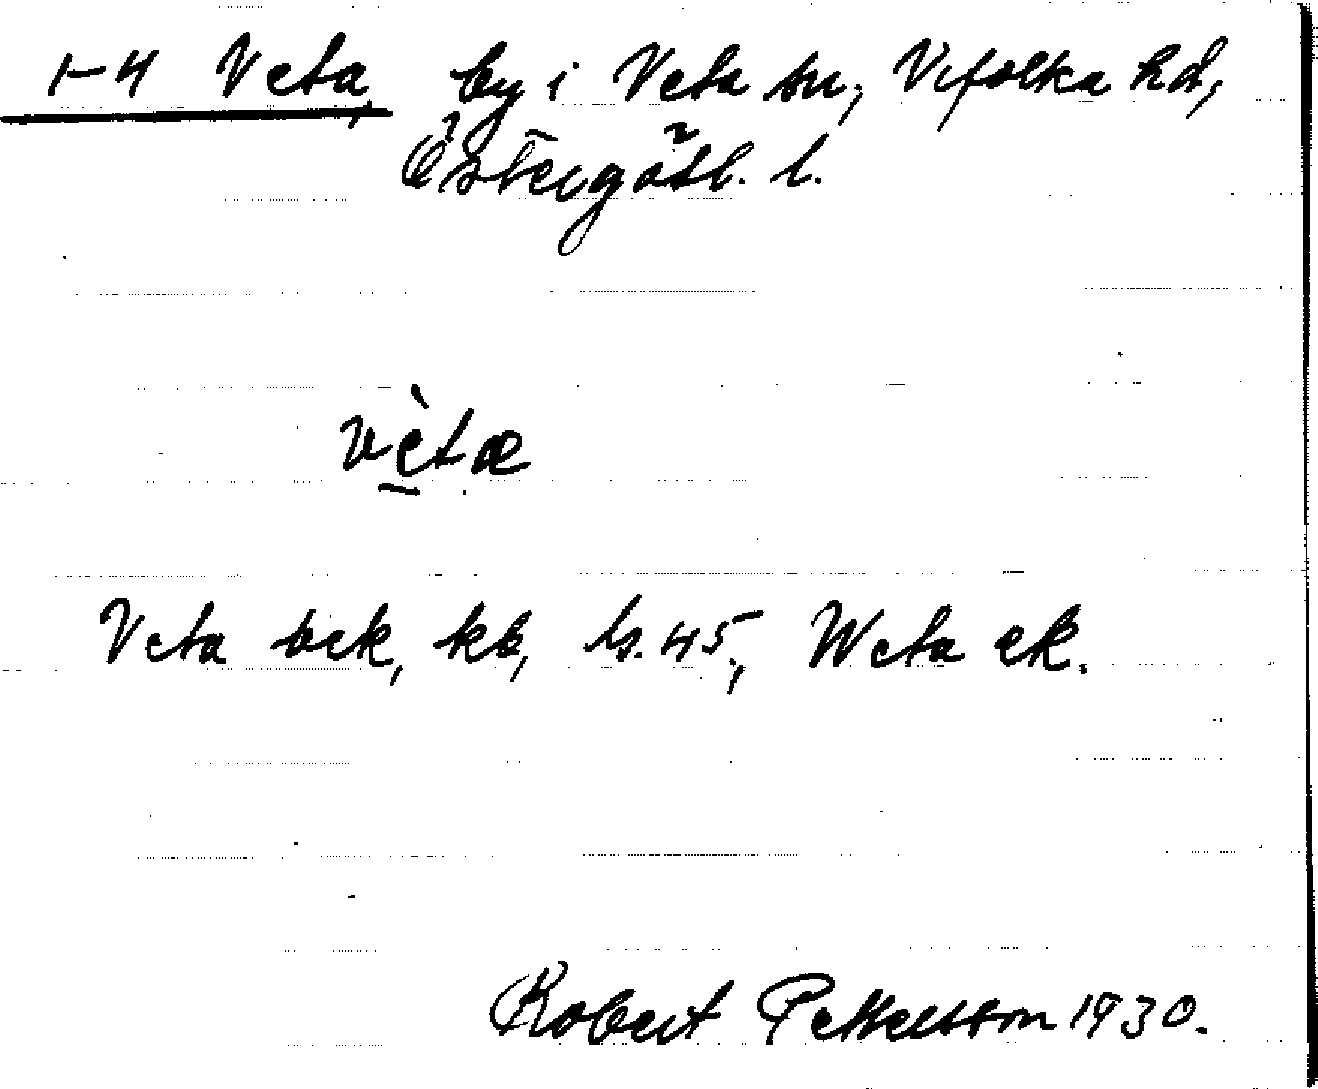 1-4 Veta, by i Veta sn, Vifolka hd,
Östergötl. l.
vètæ
Veta sek, kb, ls. 45, Weta ek.
Robert Pettersson 1930.